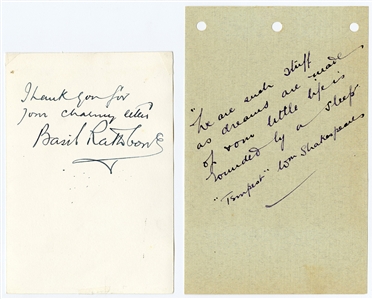 Thank you for
your charming letter
Basil Rathbone
"We are such stuff
as dreams are made
of & our little life is
rounded by a sleep
"Tempest" Wm Shakespeare